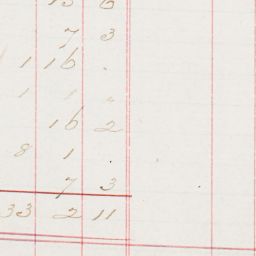 15 6
7 3
1 16 .
1 1 "
16 2
8 1
7 3
33 2 11